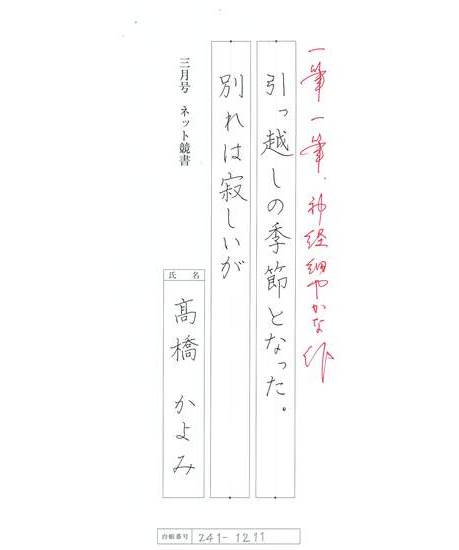 一筆一筆、神経細やかな作
引っ越しの季節となった。
別れは寂しいが
三月号 ネット競書
氏名
髙橋 かよみ
台帳番号 241-1211